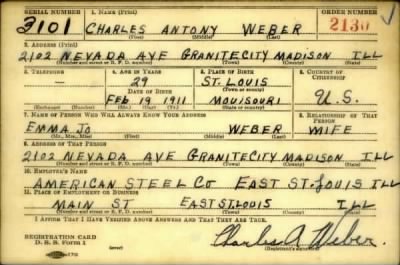 SERIAL NUMBER 1. NAME (Print) ORDER NUMBER
3101 CHARLES ANTONY WEBER 2130
(First) (Middle) (Last)
2. ADDRESS (Print)
2102 NEVADA AVE GRANITECITY MADISON ILL
(Number and street or R. F. D. number) (Town) (County) (State)
3. TELEPHONE 4. AGE IN YEARS 5. PLACE OF BIRTH 6. COUNTRY OF CITIZENSHIP
— 29 ST. LOUIS
DATE OF BIRTH (Town or county)
FEB 19 1911 MOUISOURI U.S.
(Exchange) (Number) (Mo.) (Day) (Yr.) (State or country)
7. NAME OF PERSON WHO WILL ALWAYS KNOW YOUR ADDRESS 8. RELATIONSHIP OF THAT PERSON
EMMA JO WEBER WIFE
(Mr., Mrs., Miss) (First) (Middle) (Last)
9. ADDRESS OF THAT PERSON
2102 NEVADA AVE GRANITECITY MADISON ILL
(Number and street or R. F. D. number) (Town) (County) (State)
10. EMPLOYER'S NAME
AMERICAN STEEL CO EAST ST. LOUIS ILL
11. PLACE OF EMPLOYMENT OR BUSINESS
MAIN ST EAST ST. LOUIS ILL
(Number and street or R. F. D. number) (Town) (County) (State)
I AFFIRM THAT I HAVE VERIFIED ABOVE ANSWERS AND THAT THEY ARE TRUE.
REGISTRATION CARD
D. S. S. Form 1
Charles A Weber
(Registrant's signature)